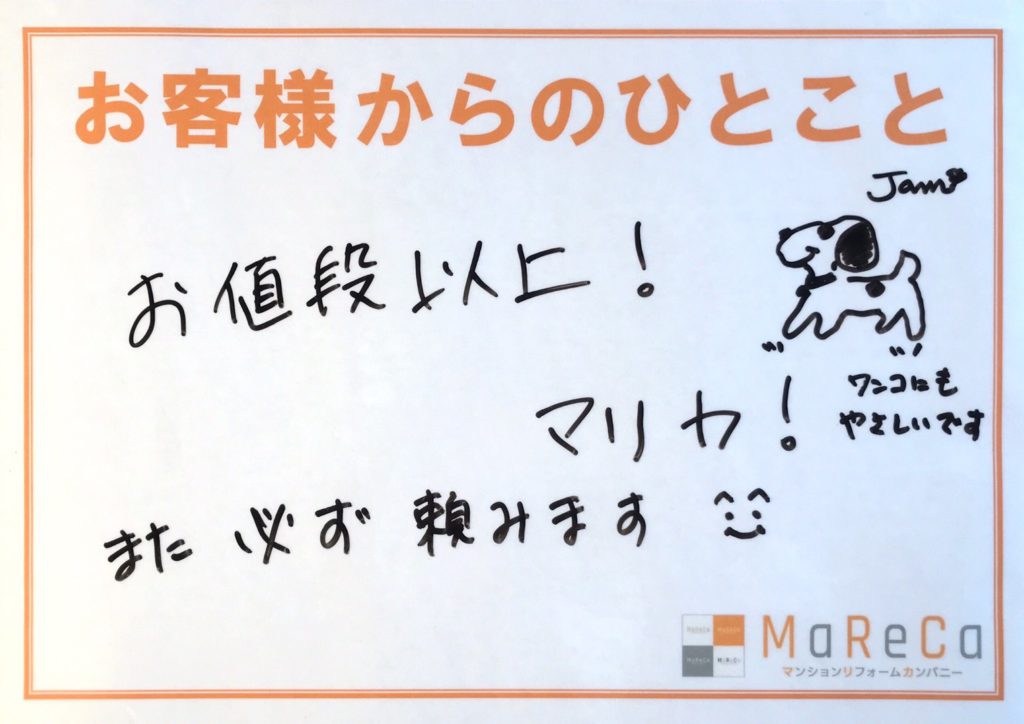 お客様からのひとこと
Jam
お値段以上!
ワンコにも
やさしいです
マリカ!
また必ず頼みます
MaReCa
マンションリフォームカンパニー